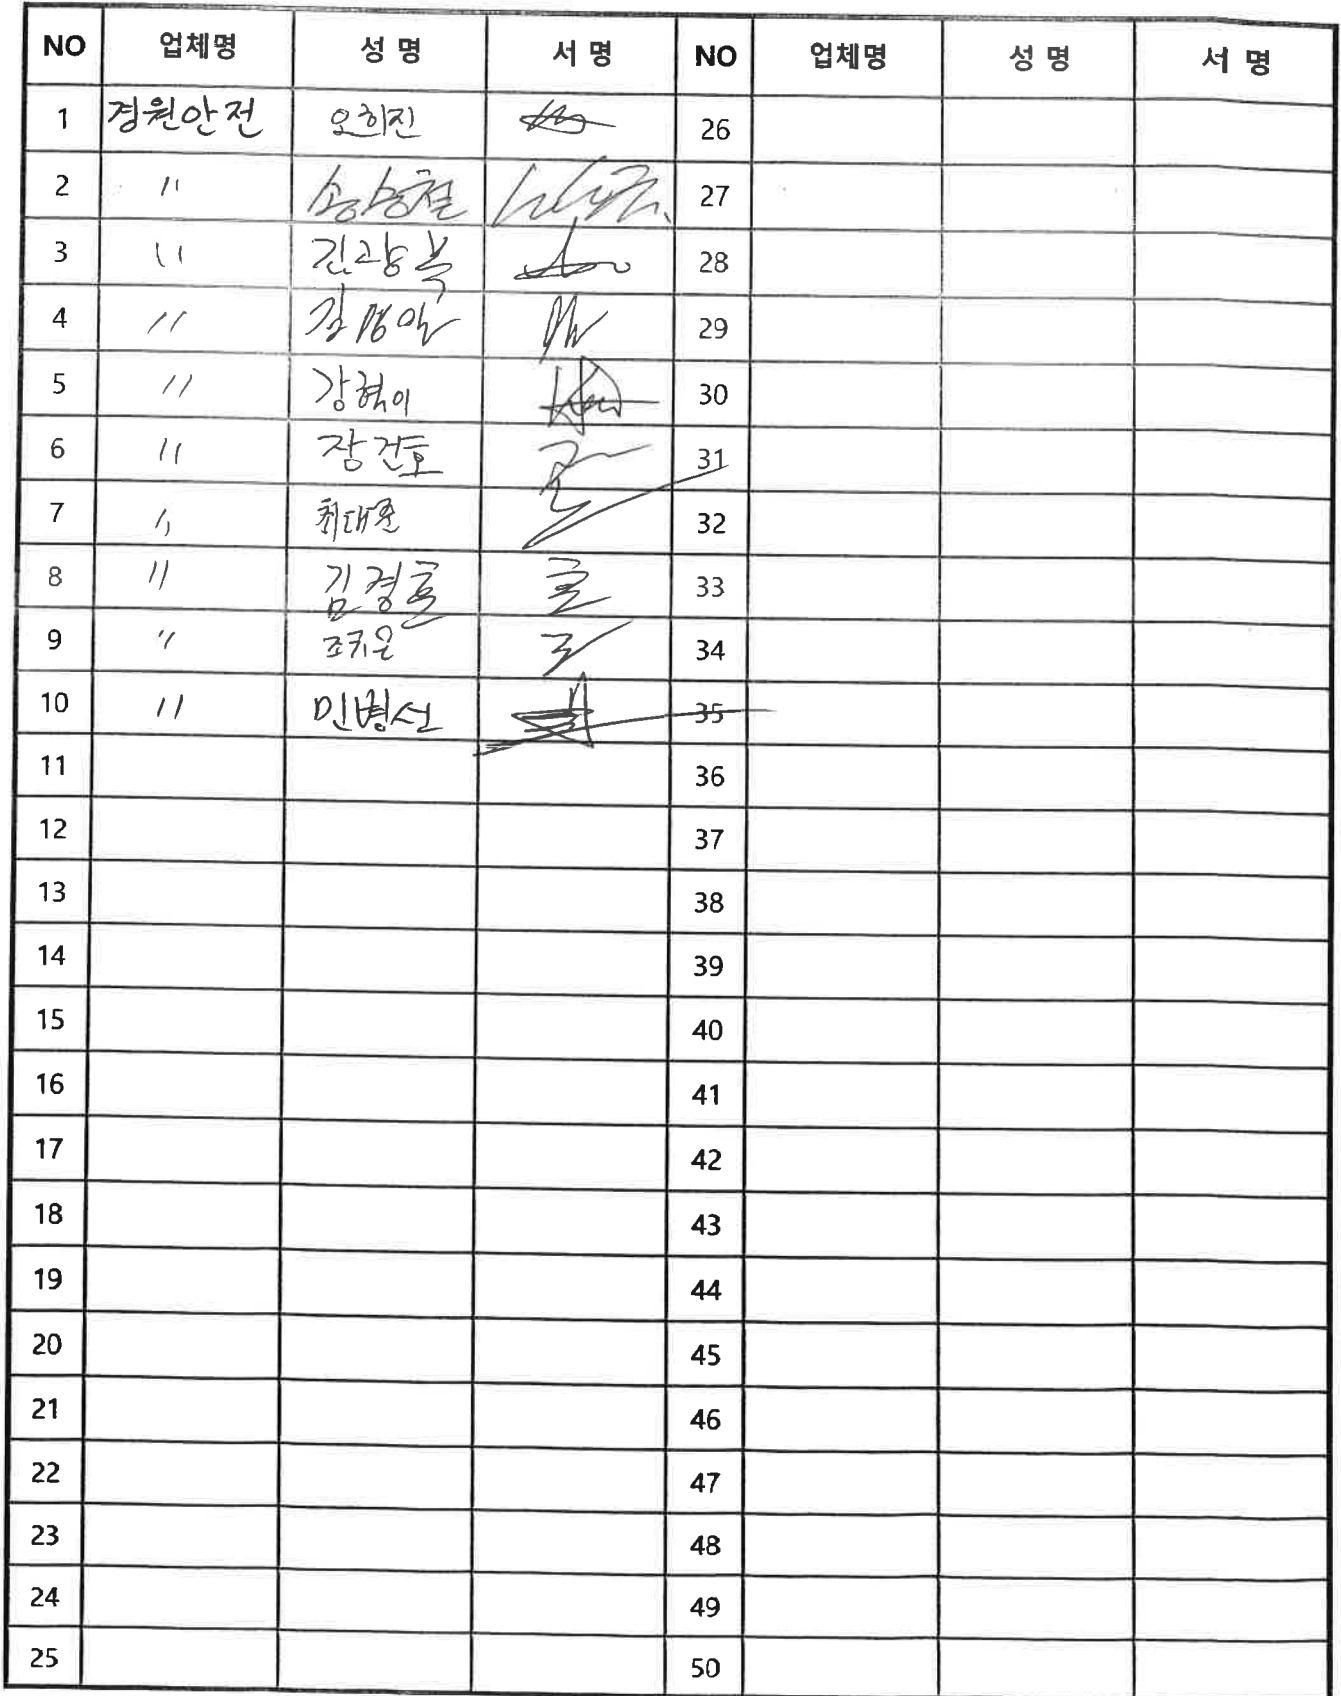 NO 업체명 성 명 서 명 NO 업체명 성 명 서 명
1 경원안전 오희진 26
2 〃 송승철 27
3 〃 김광복 28
4 〃 29
5 〃 강혁이 30
6 〃 장건호 31
7 〃 최대준 32
8 〃 김경훈 33
9 〃 조키온 34
10 〃 민병선 35
11 36
12 37
13 38
14 39
15 40
16 41
17 42
18 43
19 44
20 45
21 46
22 47
23 48
24 49
25 50